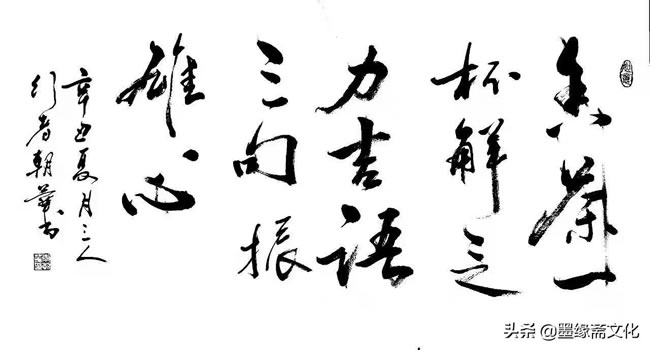 香茶一
杯解乏
力吉语
三句振
雄心
辛丑夏月三人
行者朝华书
头条 @墨缘斋文化